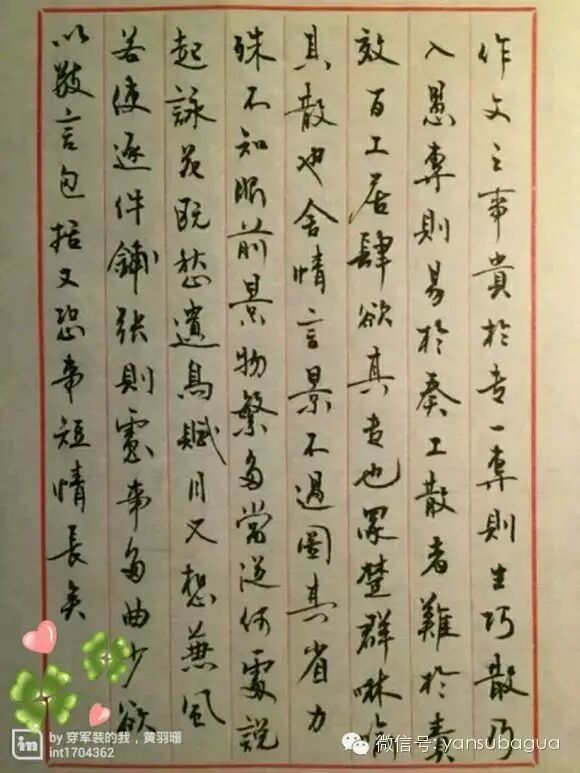 作文之事貴於專一專則生巧散乃
入愚專則易於奏工散者難於責
效百工居肆欲其專也眾楚群咻喻
其散也舍情言景不過圖其省力
殊不知眼前景物繁多當從何處說
起詠花既愁遺鳥賦月又想兼風
若使逐件鋪張則慮事多曲少欲
以數言包括又恐事短情長矣
in
by 穿军装的我，黄羽珊
int1704362
微信号: yansubagua